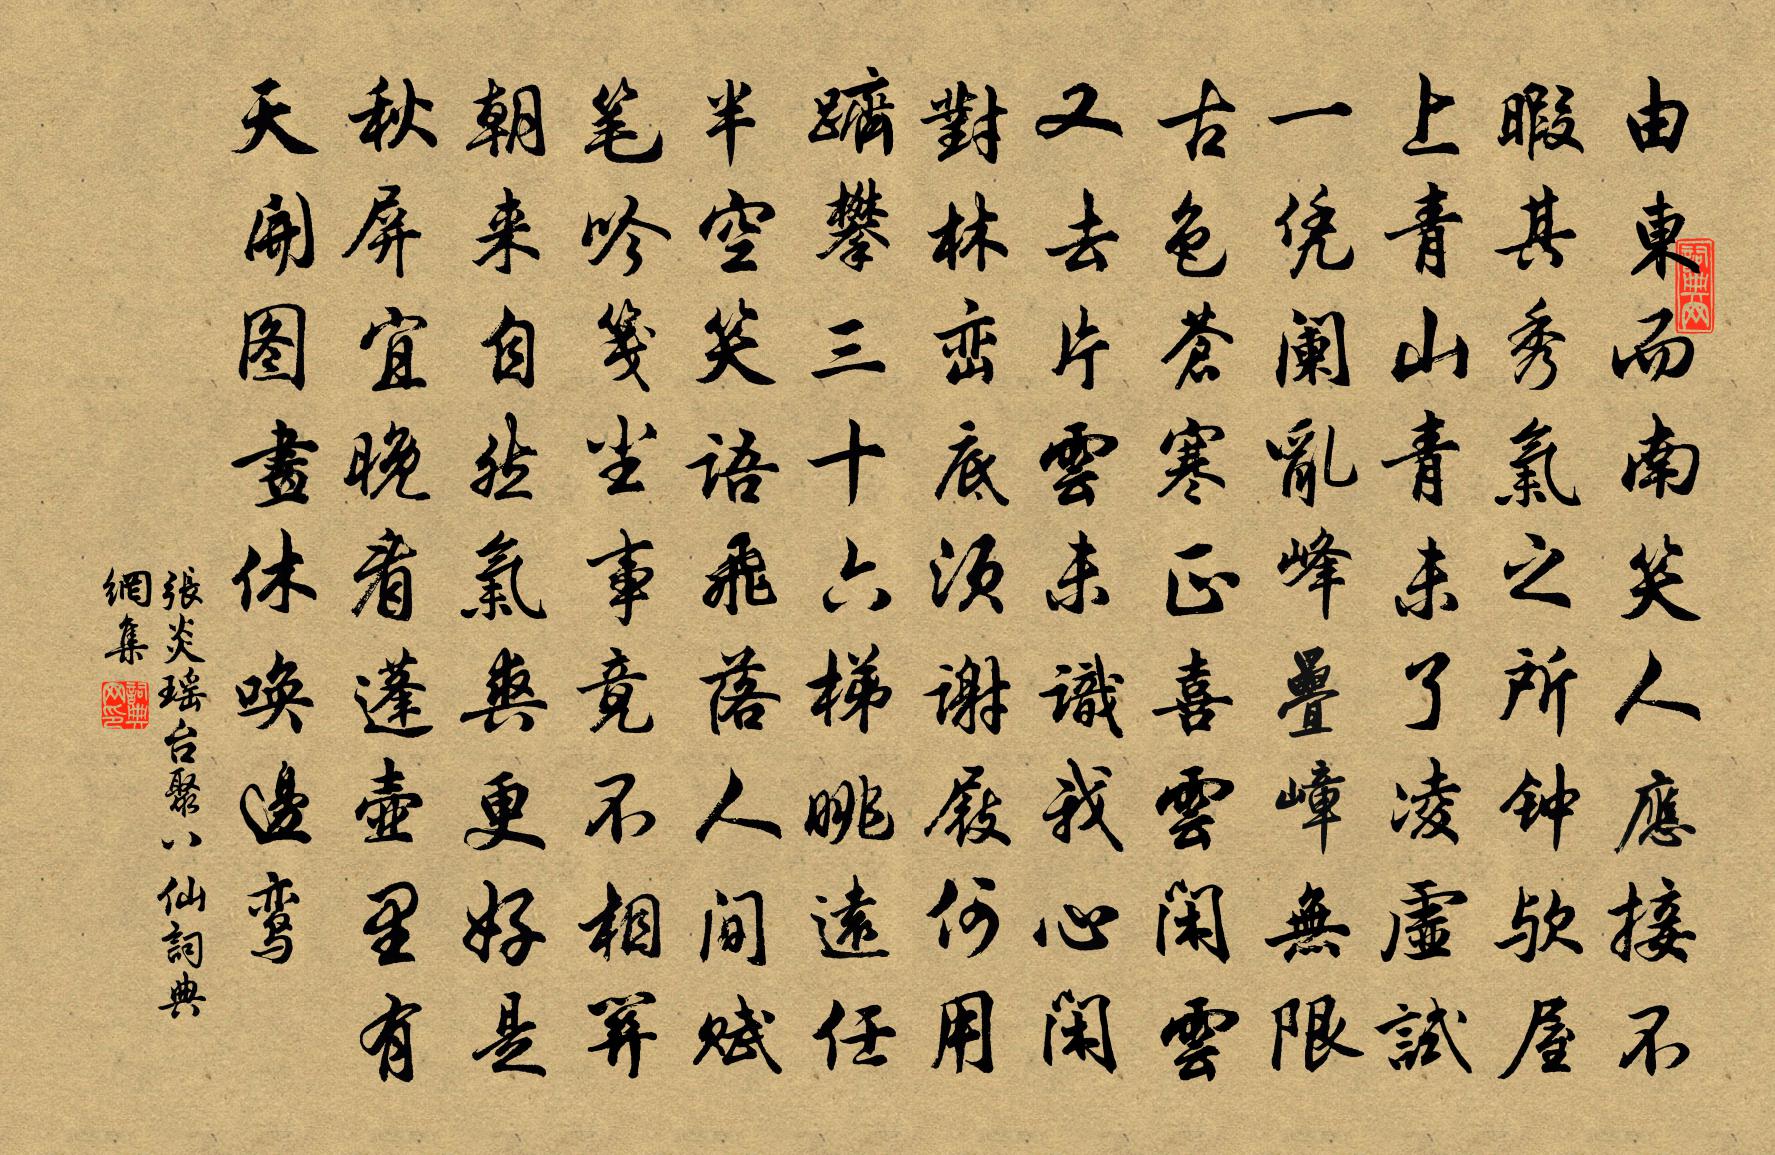 由東而南笑人應接不
暇其秀氣之所钟欤屋
上青山青未了凌虛試
一凭阑亂峰疊嶂無限
古色蒼寒正喜雲閑雲
又去片雲未識我心閑
對林峦底須谢屐何用
躋攀三十六梯眺遠任
半空笑語飛落人间赋
笔吟笺尘事竟不相关
朝来自然氣爽更好是
秋屏宜晚看蓬壶里有
天開图畫休唤邊鸾
張炎瑶台聚八仙詞典
網集
詞典網
詞典網印